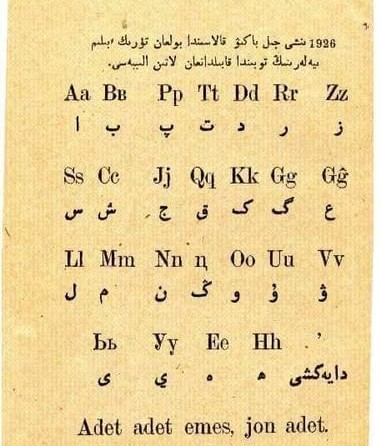 1926 ىنشى جىل باكىۋ قالاسىندا بولعان تۇرىك ٴبىلىم
يەلەرىنىڭ توبىندا قابىلدانعان لاتىن الىببەسى.
Aa Bв Pp Tt Dd Rr Zz
ا ب پ ت د ر ز
Ss Cc Jj Qq Kk Gg Gĝ
س ش ج ق ک گ ع
Ll Mm Nn ꞑ Oo Uu Vv
ل م ن ڭ و ۇ ۋ
Ьь Уy Ee Hh ’
ى ي ە ھ دايەكشى
Adet adet emes, jon adet.